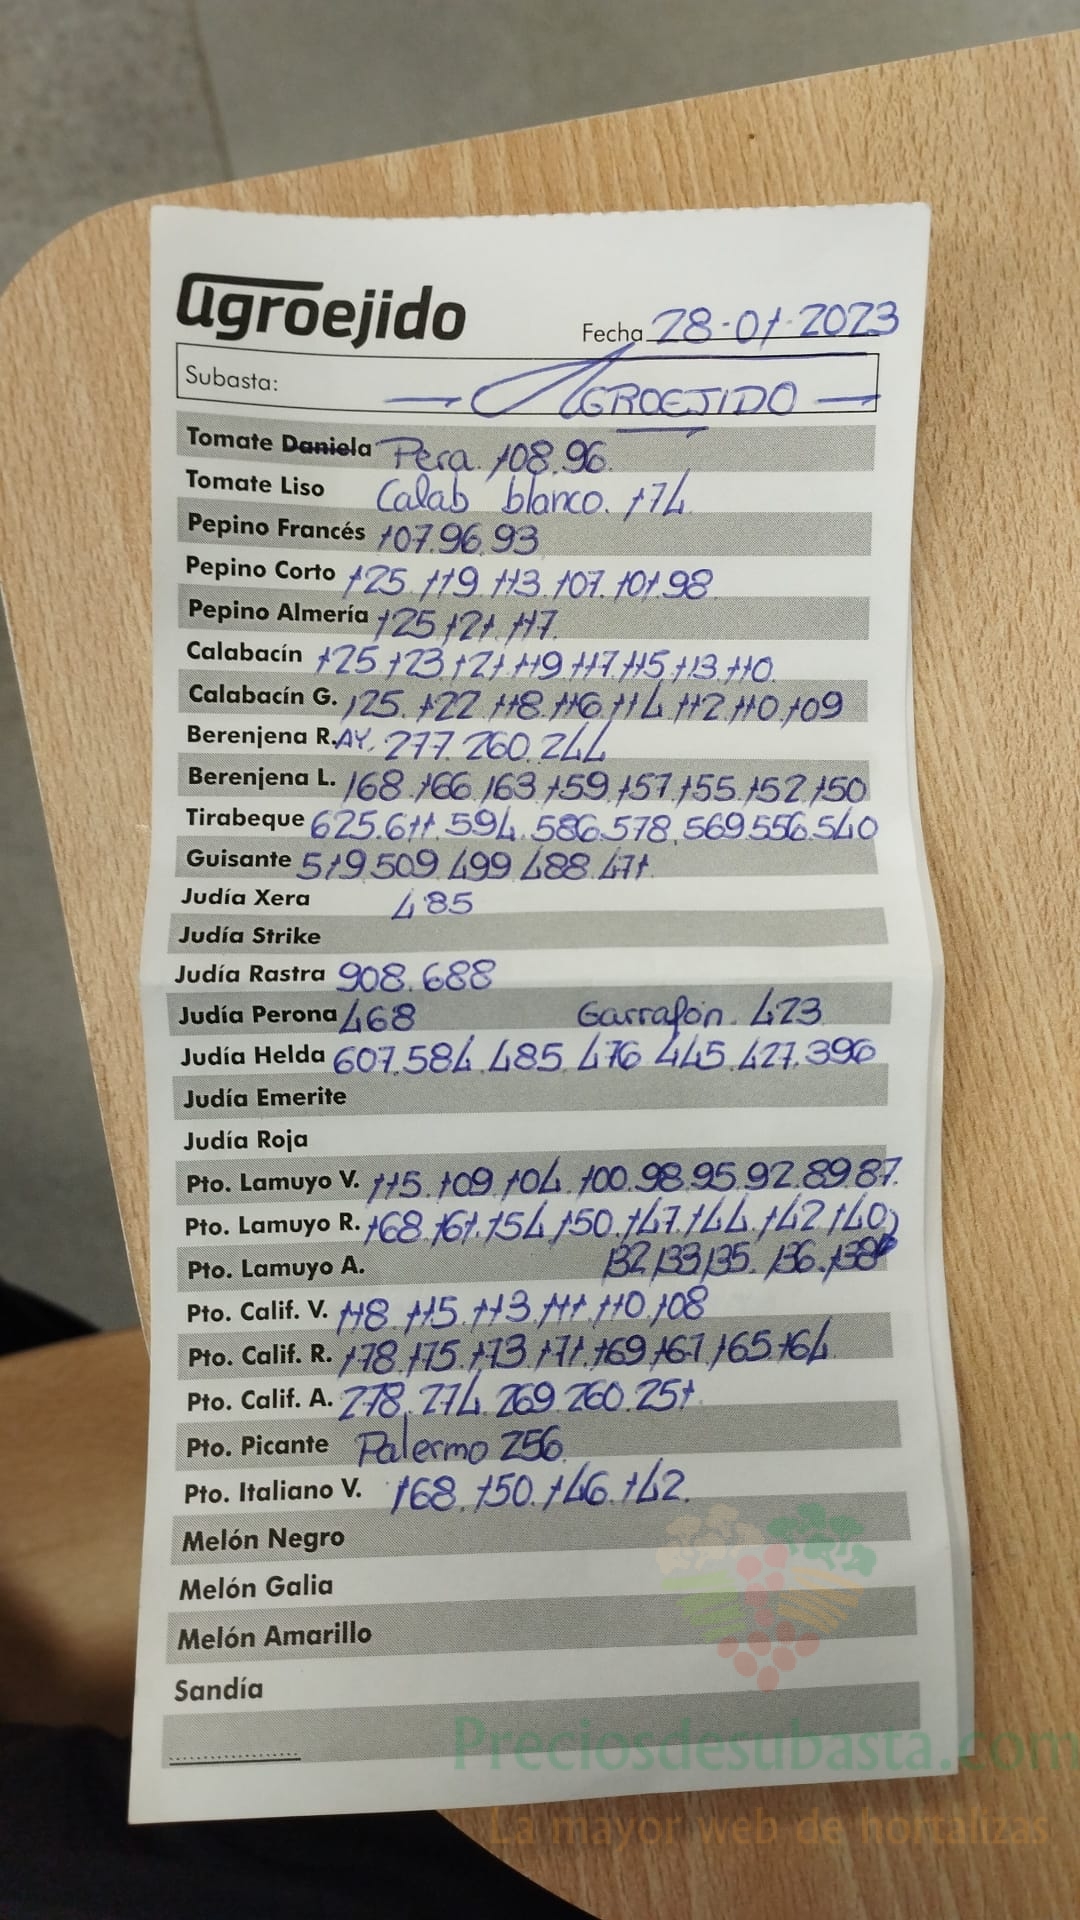 agroejido
Fecha 28-01-2023
Subasta: AGROEJIDO
Tomate Daniela Pera. 108.96.
Tomate Liso Calab blanco. 174.
Pepino Francés 107.96.93
Pepino Corto 125.119.113.107.101.98.
Pepino Almería 125.121.117.
Calabacín 125.123.121.119.117.115.113.110.
Calabacín G. 125.122.118.116.114.112.110.109
Berenjena R.AY. 277.260.244
Berenjena L. 168.166.163.159.157.155.152.150
Tirabeque 625.611.594.586.578.569.556.540
Guisante 519.509.499.488.471.
Judía Xera 485
Judía Strike
Judía Rastra 908.688
Judía Perona 468 Garrafón. 423
Judía Helda 607.584.485.476.445.427.396
Judía Emerite
Judía Roja
Pto. Lamuyo V. 115.109.104.100.98.95.92.89.87.
Pto. Lamuyo R. 168.161.154.150.147.144.142.140
Pto. Lamuyo A. 132.133.135.136.138
Pto. Calif. V. 118.115.113.111.110.108
Pto. Calif. R. 178.175.173.171.169.167.165.164
Pto. Calif. A. 278.274.269.260.251.
Pto. Picante Palermo 256.
Pto. Italiano V. 168.150.146.142.
Melón Negro
Melón Galia
Melón Amarillo
Sandía
Preciosdesubasta.com
La mayor web de hortalizas